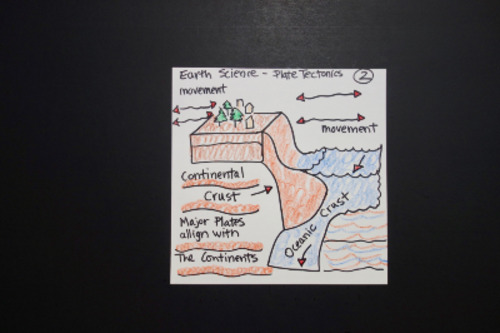 Earth Science - Plate Tectonics 2
movement
movement
Continental
Crust
Major Plates
allign with
The Continents
Oceanic Crust